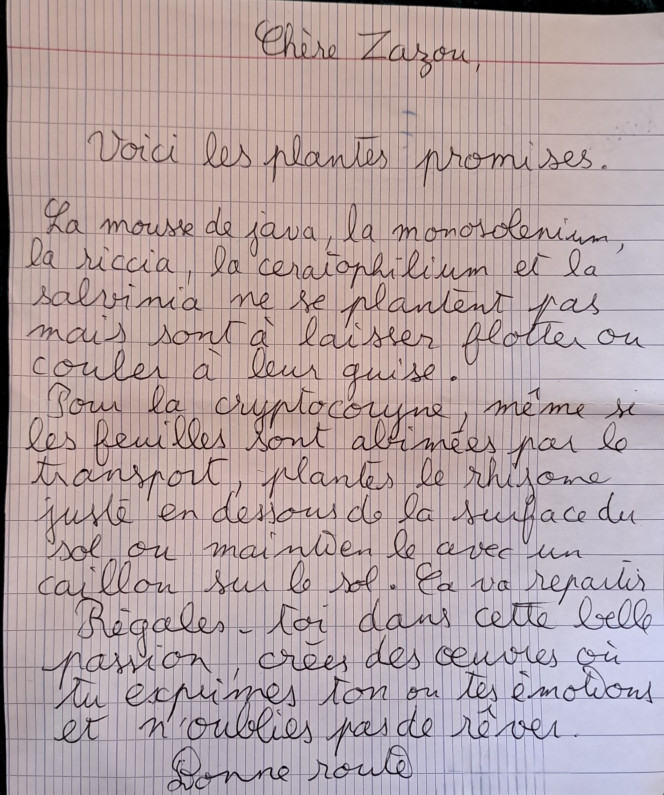 Chère Zazou,
Voici les plantes promises.
La mousse de java, la monosolenium,
la riccia, la ceratophilium et la
salvinia ne se plantent pas
mais sont à laisser flotter ou
couler à leur guise.
Pour la cryptocoryne, même si
les feuilles sont abimées par le
transport, plantes le rhizome
juste en dessous de la surface du
sol ou maintien le avec un
caillou sur le sol. Ca va repartir
Régales-toi dans cette belle
passion, crées des œuvres où
tu exprimes ton ou tes émotions
et n'oublies pas de rêver.
Bonne route